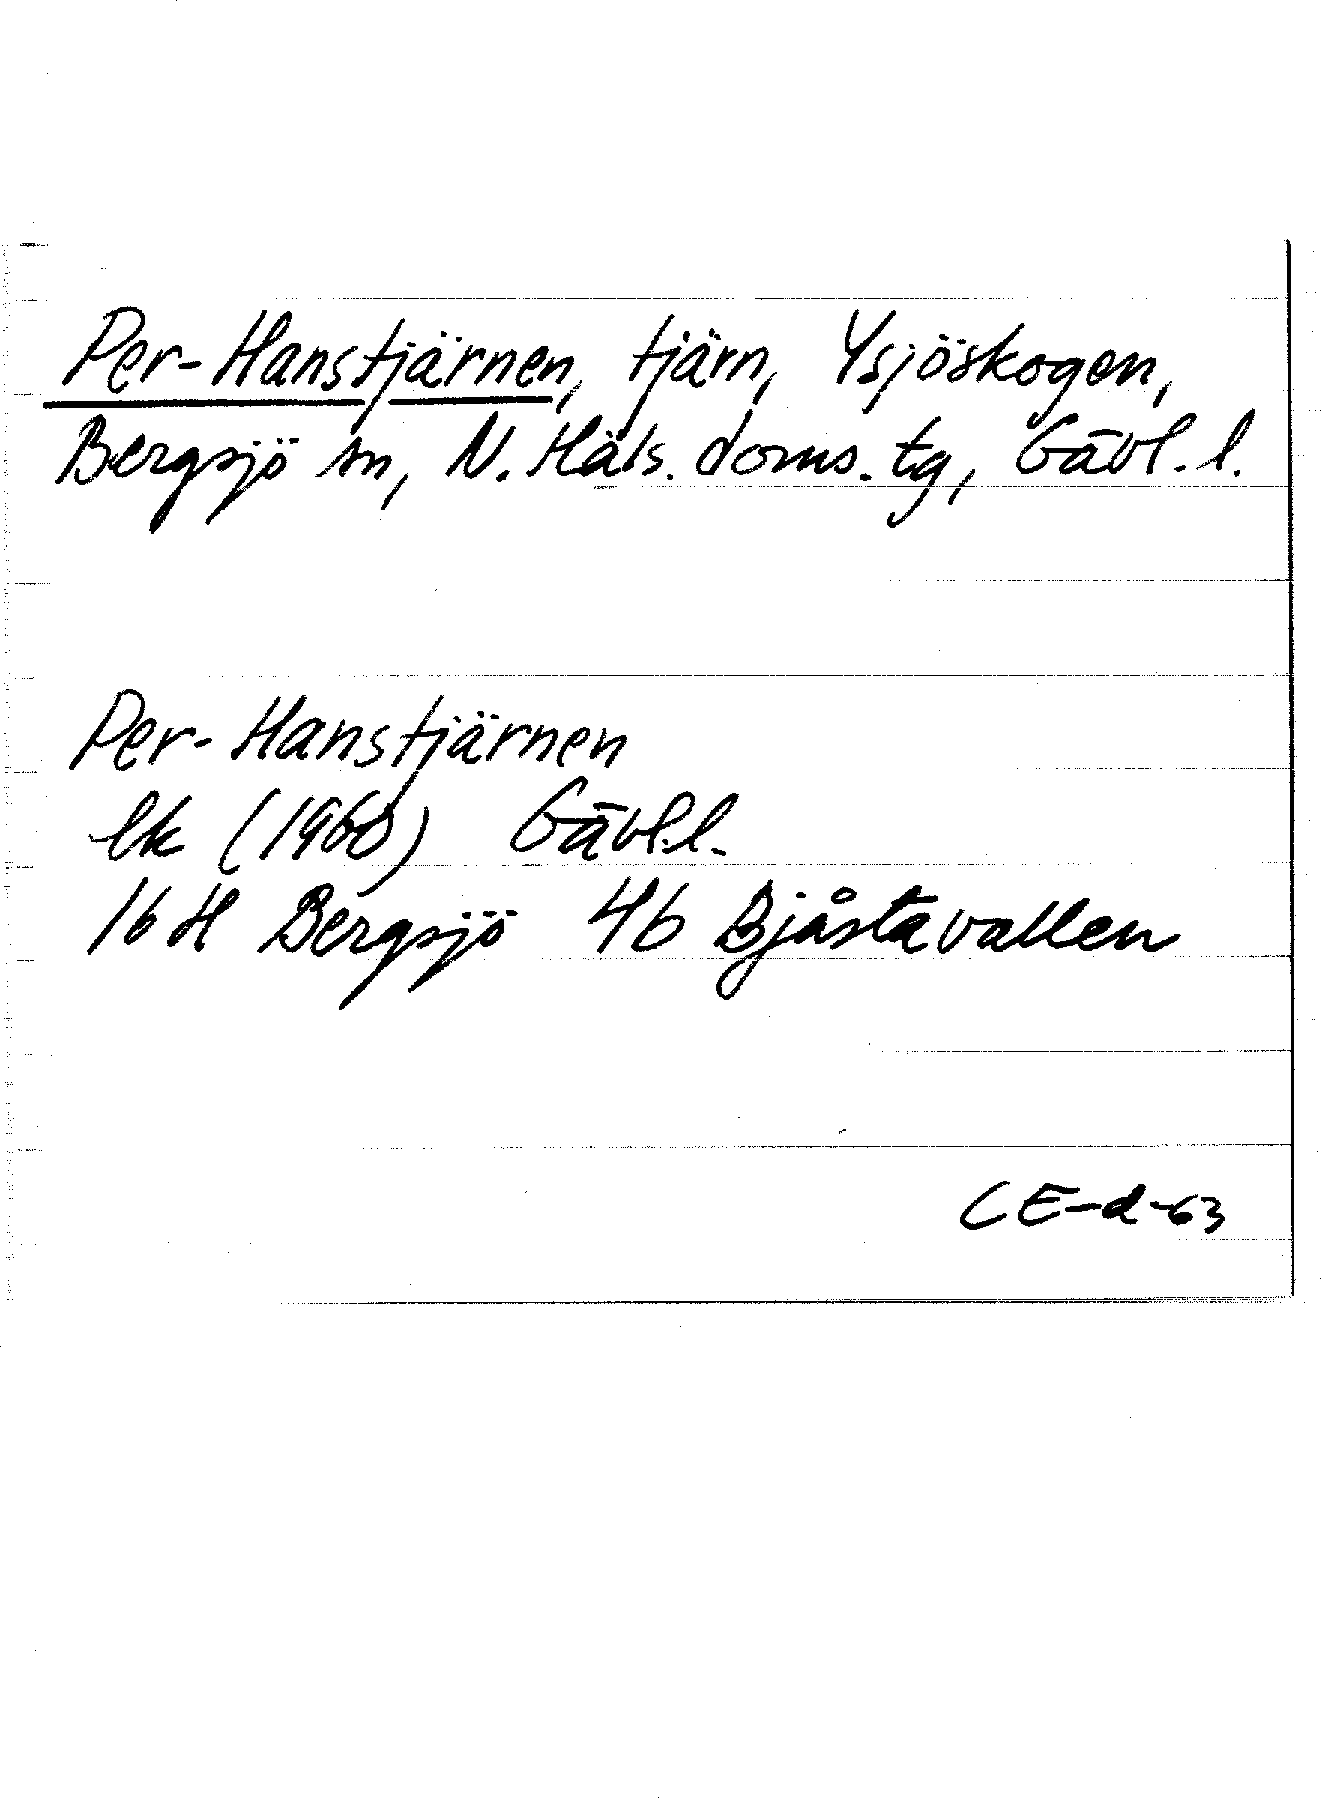 Per-Hanstjärnen, tjärn, Ysjöskogen,
Bergsjö sn, N. Häls. doms. tg, Gävl. l.
Per-Hanstjärnen
ek (1960) Gävl.l.
16 H Bergsjö 4b Bjåstavallen
CE-d-63